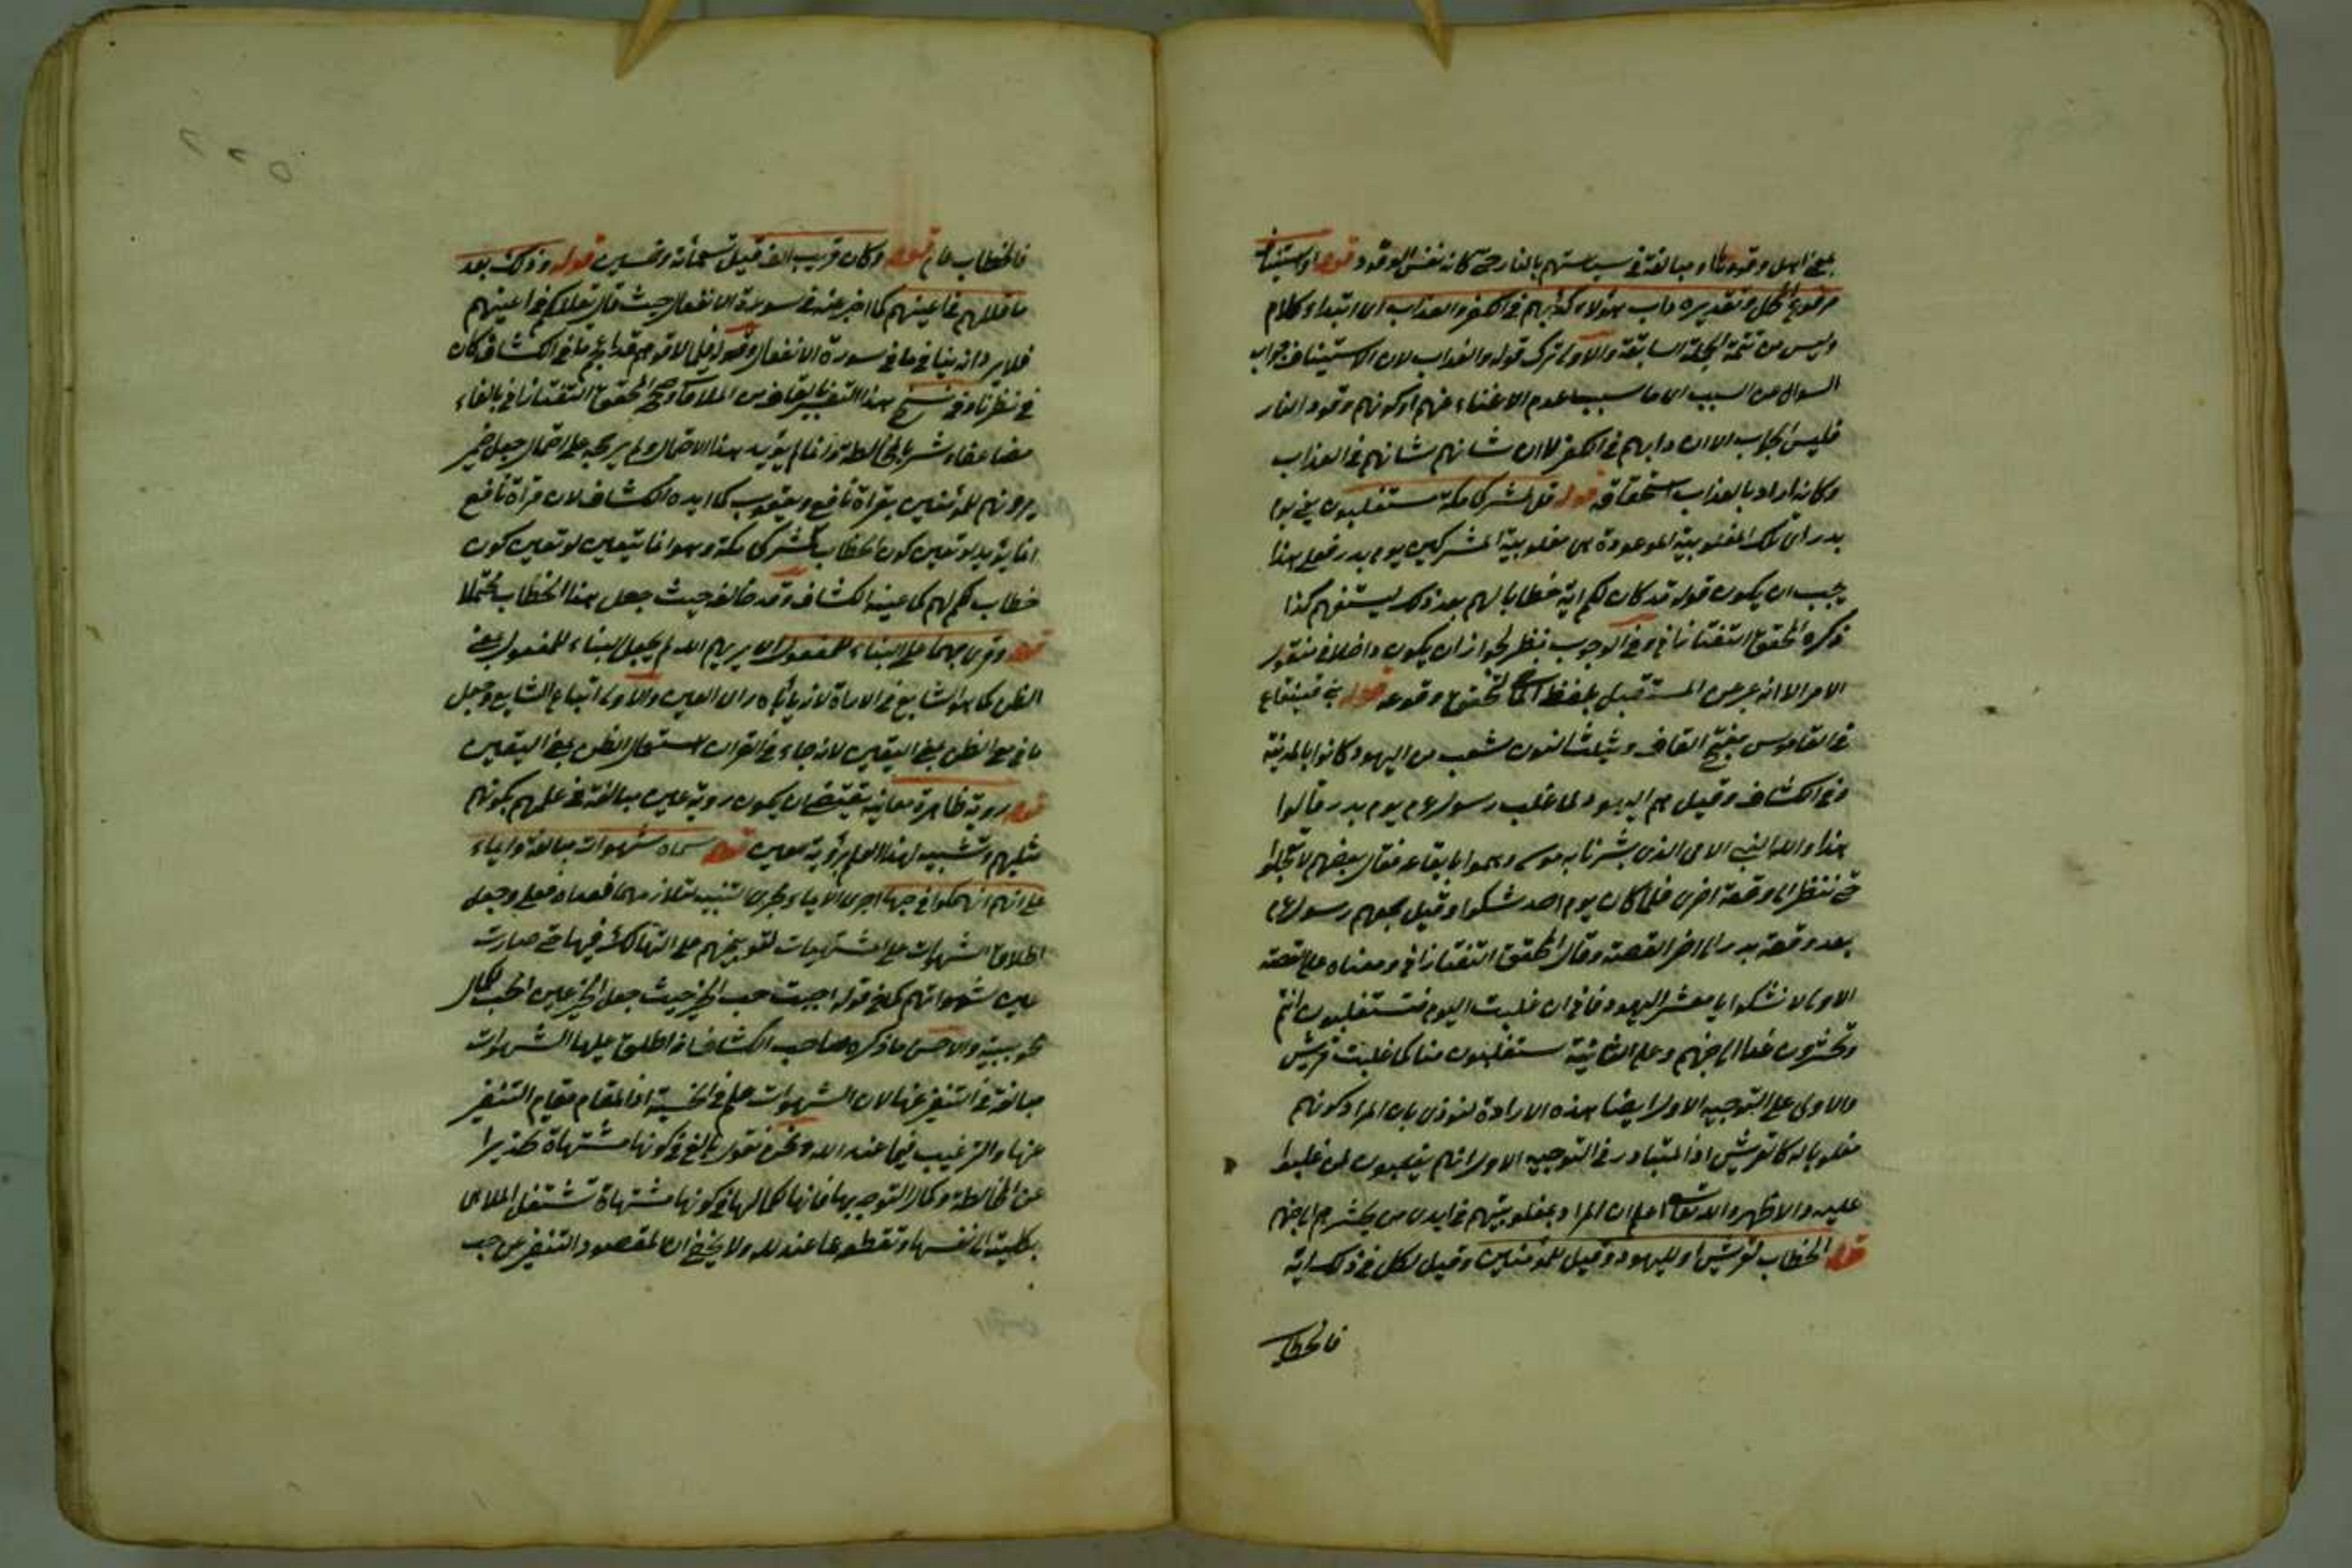 بمعنى اهل وقودها او مبالغة في سياستهم بالنار حتى كانه نفس الوقود قوله او استيناف
مرفوع المحل وتقديره داب هؤلاء كدابهم في الكفر والعذاب اى ابتداء كلام
وليس من تتمة الجملة السابقة والاولى ترك قوله والعذاب لان الاستيناف جواب
السوال عن السبب اى ما سبب عدم الاغناء عنهم او كونهم وقود النار
فليس الجواب الا ان دابهم في الكفر لا ان شانهم شانهم في العذاب
وكانه اراد بالعذاب استحقاقه قوله قل لمشركى مكة ستغلبون يعنى يوم
بدر اى تلك المغلوبية الموعودة هى مغلوبية المشركين يوم بدر فعلى هذا
يجب ان يكون قوله قد كان لكم اية خطابا لهم بعد ذلك ليستفهم كذا
ذكره المحقق التفتازانى وفى الوجوب نظر لجواز ان يكون داخلا فى مقول
الامر الا انه عبر عن المستقبل بلفظ الماضى لتحقق وقوعه قوله بنى قينقاع
فى القاموس بفتح القاف وتثليث النون شعب من اليهود كانوا بالمدينة
وفى الكشاف وقيل هم اليهود لما غلب رسول عم يوم بدر قالوا
هذا والله النبى الامى الذى بشرنا به موسى وهموا باتباعه فقال بعضهم لا تعجلوا
حتى ننظر الى وقعة اخرى فلما كان يوم احد شكوا وقيل جمعهم رسول عم
بعد وقعة بدر الى اخر القصة وقال المحقق التفتازانى ومعناه على القصة
الاولى لا تشكوا يا معشر اليهود فانى ان غلبت اليوم فستغلبون انتم
وتحشرون الى جهنم وعلى الثانية ستغلبون منا كما غلبت قريش
والاولى على التوجيه الاول ايضا هذه الارادة لنوذى بان المراد كونهم
مغلوبا له كقريش اذ المتبادر فى التوجيه الاول انهم يغلبون لمن غلبوا
عليه والاظهر والله تعالى اعلم ان المراد بمغلوبيتهم فى ايدى من يحشرهم الى جهنم
قوله الخطاب لقريش او لليهود وقيل للمؤمنين وقيل لكل فى ذلك اية
فالخطاب
فالخطاب عام قوله وكان قريب الف قيل تسعمائة وخمسين قوله وذلك بعد
ما قللهم فى اعينهم كما اخبر عنه فى سورة الانفال حيث قال يقللكم فى اعينهم
فلا يرد انه ينافى ما فى سورة الانفال وقوله قيل الاقوهم قد اجتمعا فى الكشاف كان
فى نظرنا وفى نسخ هذا التفسير بالقاف من الملاقاة وصححه المحقق التفتازانى بالفاء
يرونهم للمؤمنين بقراة نافع ويعقوب كما ايده الكشاف لان قراة نافع
انما يؤيد لو تعين كون الخطاب لمشركى مكة وهو انما يتعين لو تعين كون
خطاب لكم لهم كما عينه الكشاف وقد خالفه حيث جعل هذا الخطاب محتملا
قوله وقرئ بهما على البناء للمفعول اى يريهم الله لم يجعل البناء للمفعول بمعنى
الظن كما هو الشايع فى الاراة لانه ياباه راى العين والاولى اتباع الشايع وجعل
ما فى مع الظن بمعنى اليقين لانه جاء فى القران استعمال الظن بمعنى اليقين
قوله روية ظاهرة معاينة يقتضى ان يكون روية عين مبالغة فى علمهم بكونهم
مثليهم وتشبيه لهذا العلم برؤية العين قوله سماه شهوات مبالغة وايماء
على انهم انهمكوا فى حبها
اطلاق الشهوات على المشتهيات لتوبيخهم على التهالك فيها حتى صارت
عين شهواتهم كما فى قوله احببت حب الخير حيث جعل الخير عين الحب لكمال
محبوبيته والاحسن ما ذكره صاحب الكشاف انه اطلق عليها الشهوات
مبالغة فى التنفير عنها لان الشهوات علم فى الخسة اذ المقام مقام التنفير
عنها والترغيب فيما عند الله ونحن نقول بالغ فى كونها مشتهاة تحذيرا
عن المخالطة وكمال التوجه بها فانها لكمالها فى كونها مشتهاة تشتغل الملاهى
بكليته الى نفسها وتقطع عما عند الله ولا يخفى ان المقصود التنفير عن حب